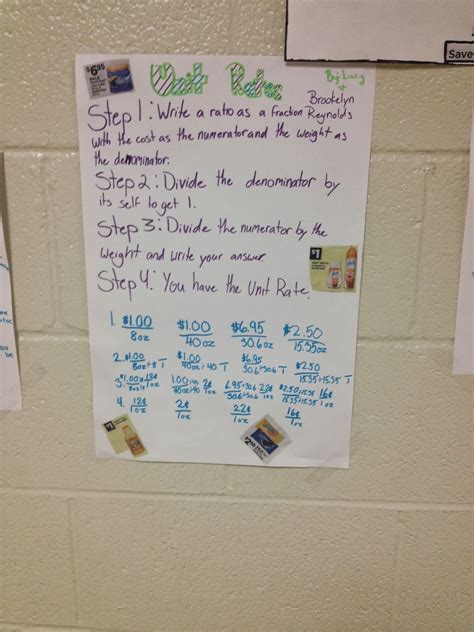 Save
$6.95
Unit Rate
By: Lucy
+
Brookelyn
Reynolds
Step 1: Write a ratio as a fraction
with the cost as the numerator and the weight as
the denominator.
Step 2: Divide the denominator by
its self to get 1.
Step 3: Divide the numerator by the
weight and write your answer.
$1
Step 4: You have the Unit Rate.
1. $1.00/8oz $1.00/40oz $6.95/30.6oz $2.50/15.35oz
2. $1.00/8oz÷8 1 $1.00/40oz÷40 1 $6.95/30.6÷30.6 1 $2.50/15.35÷15.35 1
3. 1.00÷40/40oz÷40 2¢/1oz 6.95÷30.6/30.6÷30.6 22¢/1oz $2.50÷15.35/15.35÷15.35 16¢/1oz
4. 12¢/1oz 2¢/1oz 22¢/1oz 16¢/1oz
$1